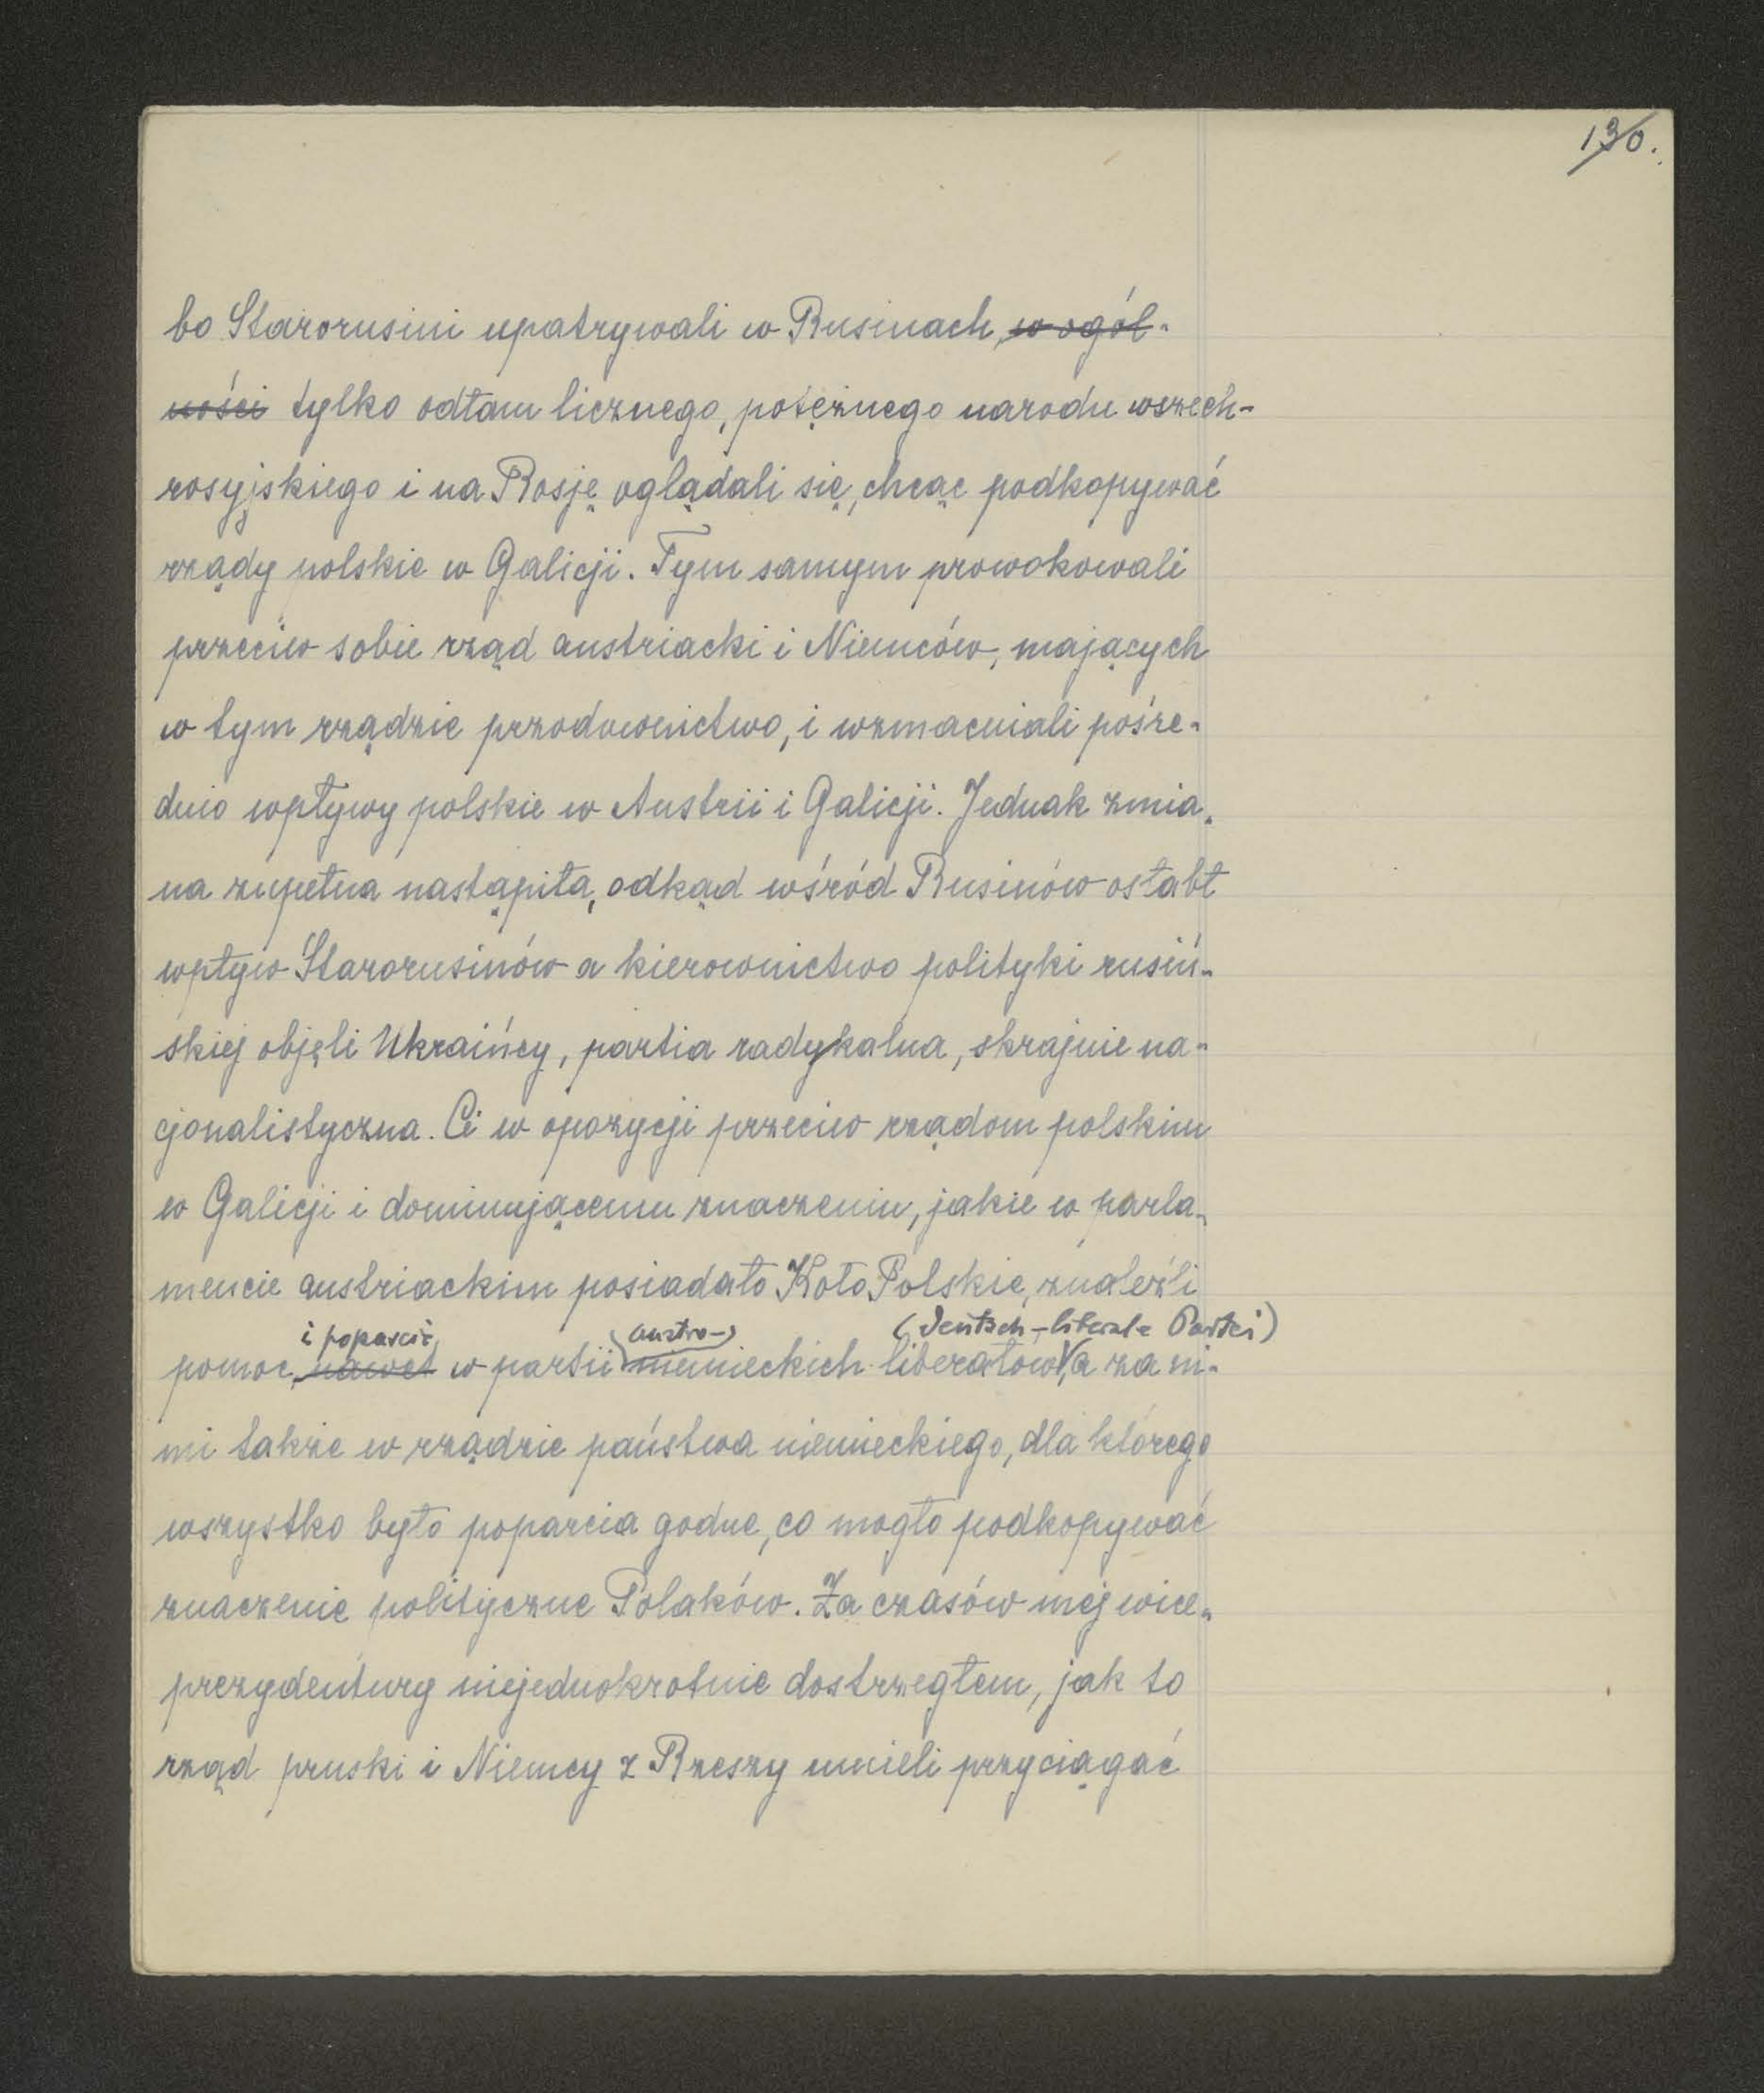 130.
bo Starorusini upatrywali w Rusinach, w ogól-
ności tylko odłam licznego, potężnego narodu wszech-
rosyjskiego i na Rosję oglądali się, chcąc podkopywać
rządy polskie w Galicji. Tym samym prowokowali
przeciw sobie rząd austriacki i Niemców, mających
w tym rządzie przodownictwo, i wzmacniali pośre-
dnio wpływy polskie w Austrii i Galicji. Jednak zmia-
na zupełna nastąpiła, odkąd wśród Rusinów osłabł
wpływ Starorusinów a kierownictwo polityki rusiń-
skiej objęli Ukraińcy, partia radykalna, skrajnie na-
cjonalistyczna. Ci w opozycji przeciw rządom polskim
w Galicji i dominującemu znaczeniu, jakie w parla-
mencie austriackim posiadało Koło Polskie, znaleźli
i poparcie (austro-) (Deutsch-liberale Partei)
pomoc, nawet w partii niemieckich liberałów, a za ni-
mi także w rządzie państwa niemieckiego, dla którego
wszystko było poparcia godne, co mogło podkopywać
znaczenie polityczne Polaków. Za czasów mej wice-
prezydentury niejednokrotnie dostrzegłem, jak to
rząd pruski i Niemcy z Rzeszy umieli przyciągać